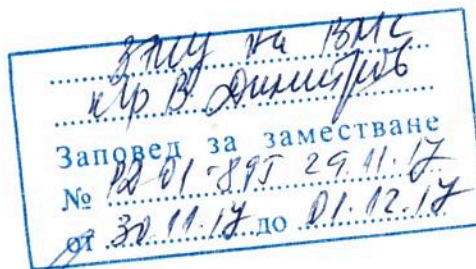 на ВМС
В. Димитров
Заповед за заместване
№ РД-01-895 29.11.17
от 30.11.17 до 01.12.17